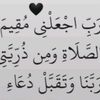 رَبِّ اجْعَلْنِي مُقِيمَ
الصَّلَاةِ وَمِن ذُرِّيَّتِي
رَبَّنَا وَتَقَبَّلْ دُعَاءِ